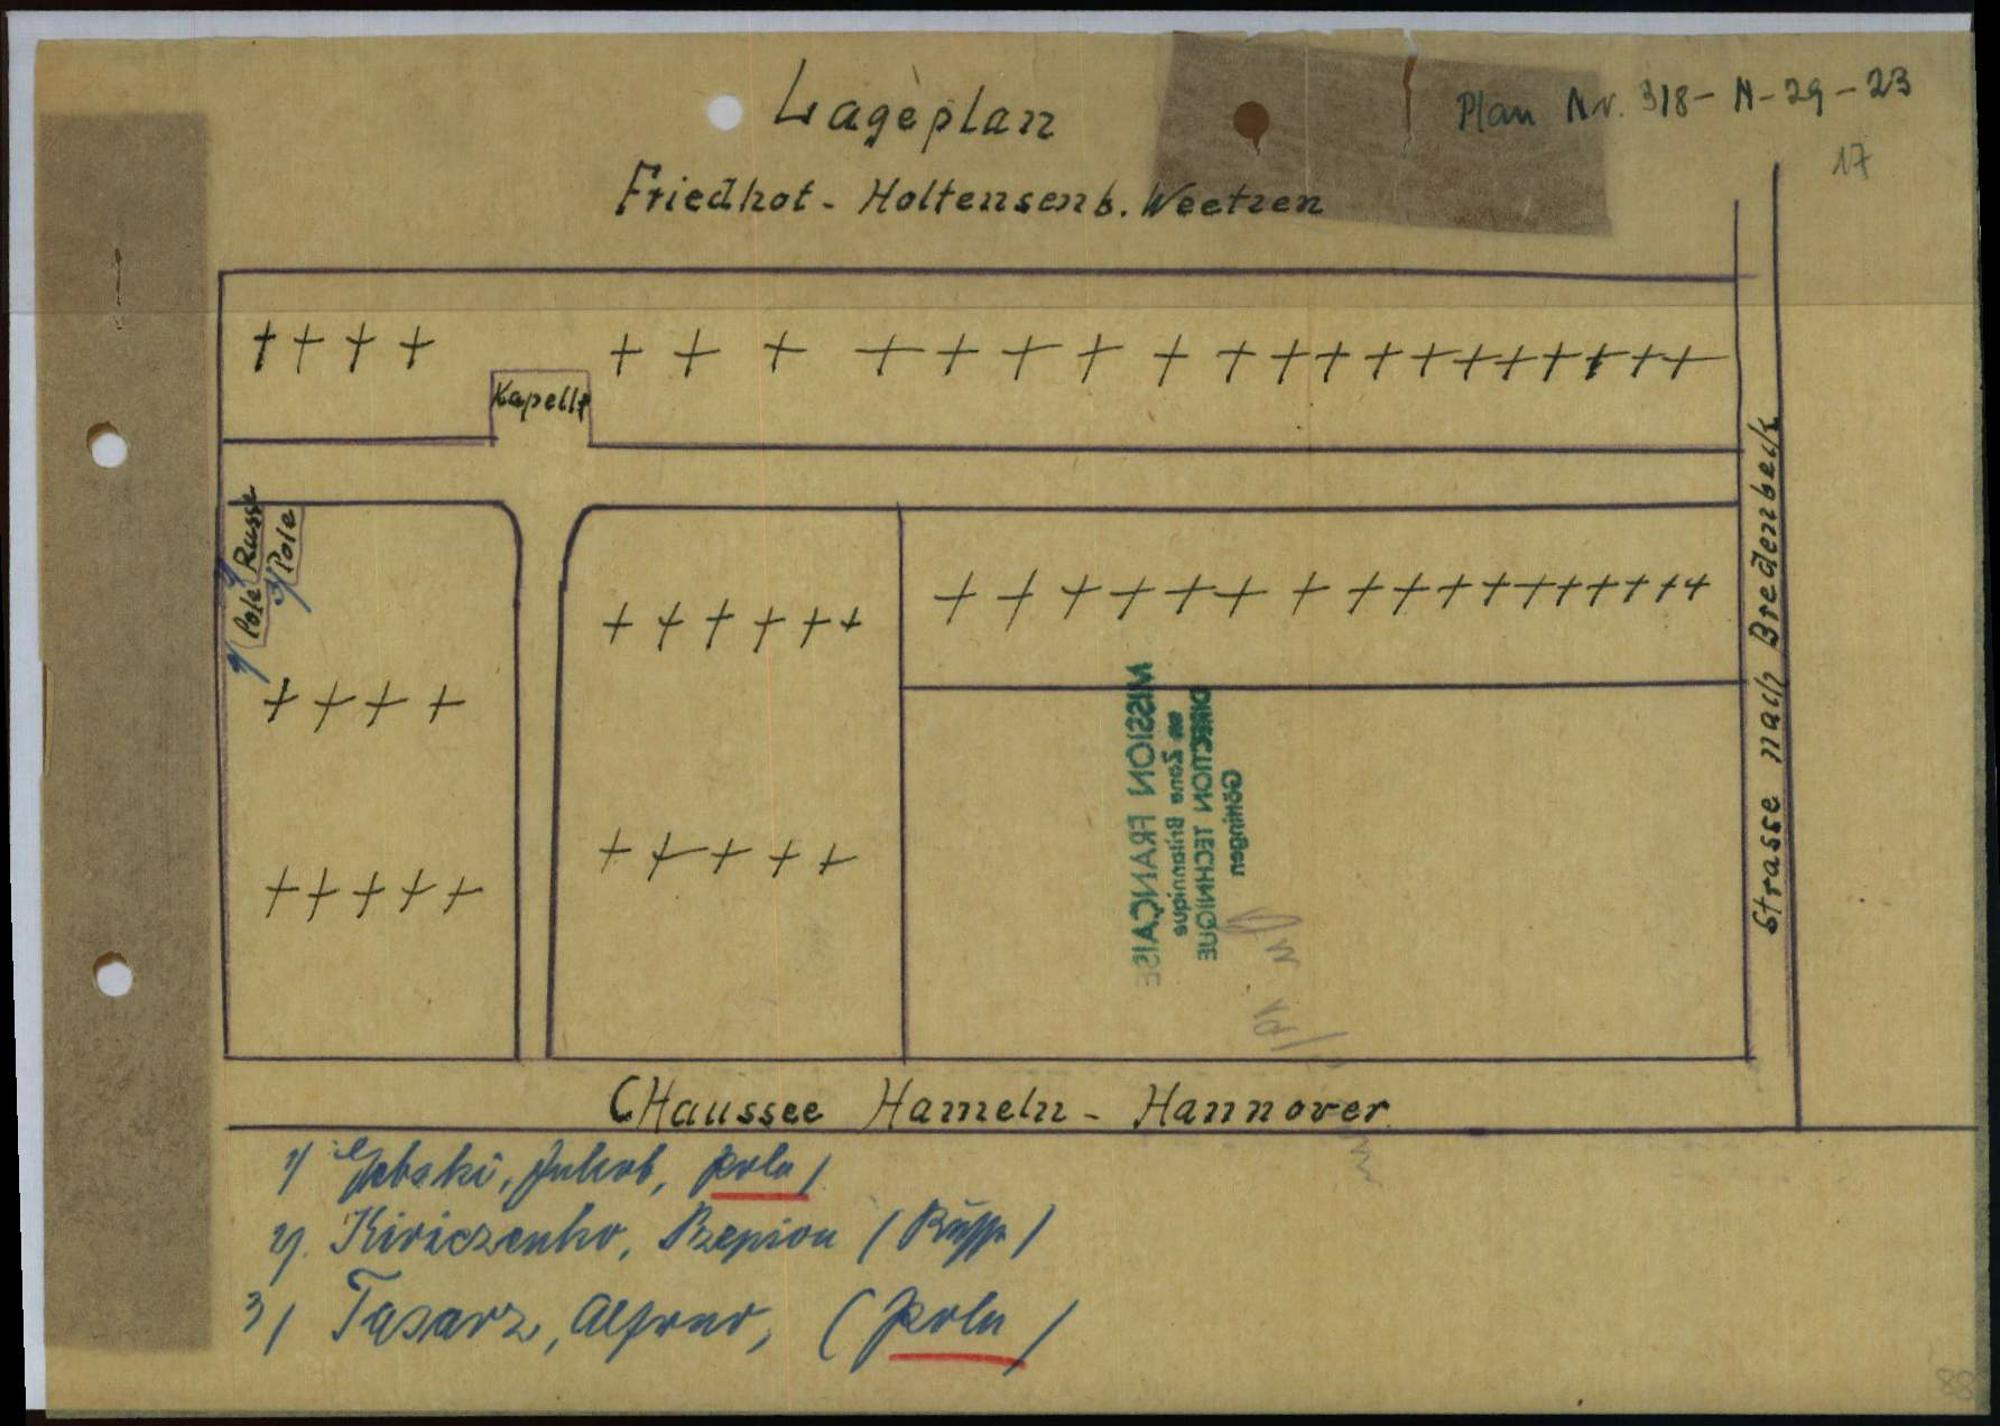 Lageplan
Plan Nr. 318-N-29-23
17
Friedhof - Holtensen b. Weetzen
Kapelle
Russe
Pole
Pole
1/
2/
3/
Strasse nach Bredenbeck
MISSION FRANÇAISE
en Zone Britannique
DIRECTION TECHNIQUE
Göttingen
CHaussee Hameln - Hannover
1/ Jakob, Pole/
2/. Kiriczenko, (Russe)
3/ Tasarz, Alfred, (Pole/
88